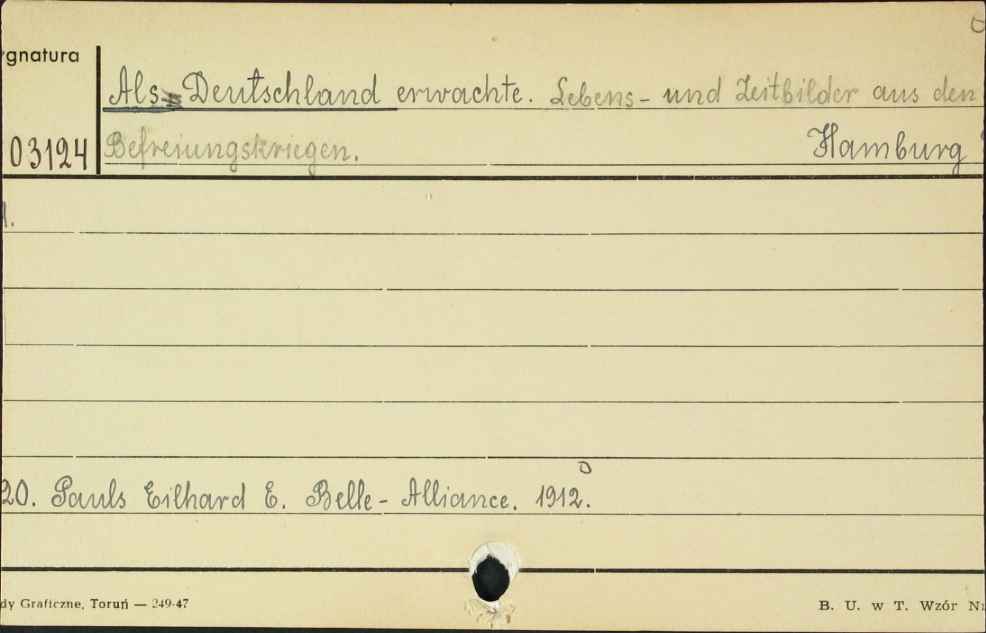 ygnatura
Als Deutschland erwachte. Lebens- und Zeitbilder aus den
03124 Befreiungskriegen. Hamburg
1.
20. Pauls Eilhard E. Belle-Alliance. 1912.
dy Graficzne, Toruń — 249-47 B. U. w T. Wzór Nr